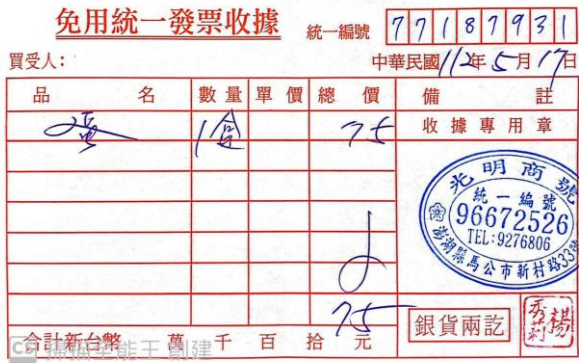 免用統一發票收據 統一編號 77187931
買受人： 中華民國112年5月17日
品名 數量 單價 總價 備註
蛋 1盒 75 收據專用章
光明商號
統一編號
96672526
TEL:9276806
澎湖縣馬公市新村路33號
75
銀貨兩訖
楊秀莉
合計新台幣 萬 千 百 拾 元
CS 掃描全能王 創建